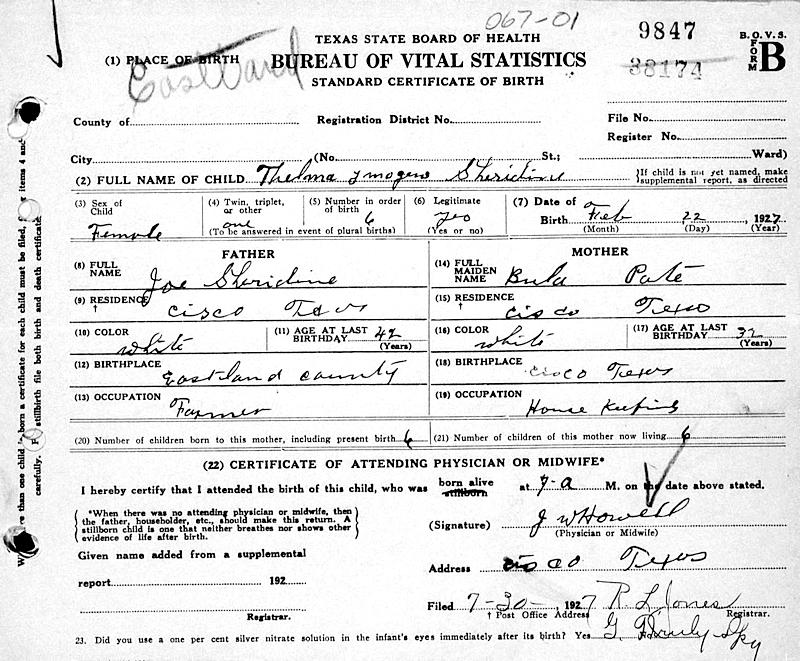 067-01
TEXAS STATE BOARD OF HEALTH
9847
B. O. V. S.
FORM
B
(1) PLACE OF BIRTH
BUREAU OF VITAL STATISTICS
38174
Eastland
STANDARD CERTIFICATE OF BIRTH
County of
Registration District No.
File No.
Register No.
City
(No.
St.;
Ward)
(2) FULL NAME OF CHILD Thelma Ymogene Sheridine
If child is not yet named, make
supplemental report, as directed
(3) Sex of Child Female
(4) Twin, triplet, or other one
(5) Number in order of birth 6
(To be answered in event of plural births)
(6) Legitimate yes
(Yes or no)
(7) Date of Birth Feb 22, 1927
(Month) (Day) (Year)
FATHER
MOTHER
(8) FULL NAME Joe Sheridine
(14) FULL MAIDEN NAME Bula Pate
(9) RESIDENCE † Cisco Texas
(15) RESIDENCE † Cisco Texas
(10) COLOR White
(11) AGE AT LAST BIRTHDAY 42 (Years)
(16) COLOR White
(17) AGE AT LAST BIRTHDAY 32 (Years)
(12) BIRTHPLACE Eastland County
(18) BIRTHPLACE Cisco Texas
(13) OCCUPATION Farmer
(19) OCCUPATION House Keeping
(20) Number of children born to this mother, including present birth 6
(21) Number of children of this mother now living 6
(22) CERTIFICATE OF ATTENDING PHYSICIAN OR MIDWIFE*
I hereby certify that I attended the birth of this child, who was born alive stillborn at 7-a M. on the date above stated.
*When there was no attending physician or midwife, then
the father, householder, etc., should make this return. A
stillborn child is one that neither breathes nor shows other
evidence of life after birth.
(Signature) J W Howell
(Physician or Midwife)
Given name added from a supplemental
report 192
Address Cisco Texas
Registrar.
Filed 7-30-, 1927 R L Jones
Registrar.
† Post Office Address
23. Did you use a one per cent silver nitrate solution in the infant's eyes immediately after its birth? Yes
than one child born a certificate for each child must be filed, items 4 and
stillbirth file both birth and death certificate.
carefully.